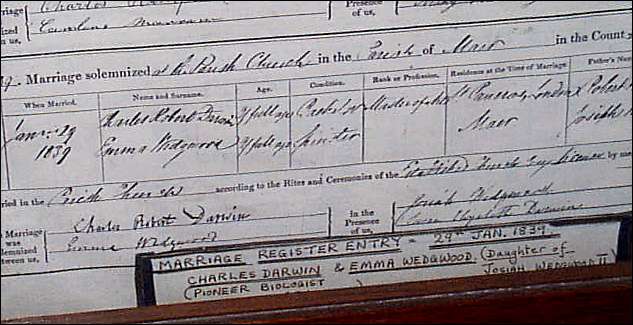 Marriage
Charles
in the Presence of us,
Caroline
Marriage solemnized at the Parish Church in the Parish of Maer in the Count
When Married. Name and Surname. Age. Condition. Rank or Profession. Residence at the Time of Marriage. Father's Nam
Jan: 29 Charles Robert Darwin of full age Bachelor Master of Arts St Pancras, London Robert
1839 Emma Wedgwood of full age Spinster Maer Josiah
ried in the Parish Church according to the Rites and Ceremonies of the Established Church by Licence by me
Marriage was solemnized between us, Charles Robert Darwin in the Presence of us, Josiah Wedgwood
Emma Wedgwood
MARRIAGE REGISTER ENTRY - 29TH JAN. 1839
CHARLES DARWIN & EMMA WEDGWOOD. (Daughter of
(PIONEER BIOLOGIST) JOSIAH WEDGWOOD II